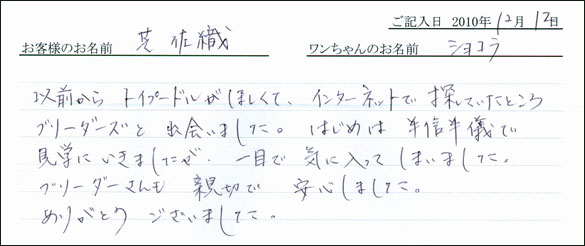 ご記入日 2010年 12月 12日
お客様のお名前 芝 佐織 ワンちゃんのお名前 ショコラ
以前から トイプードルが ほしくて、インターネットで 探していたところ
ブリーダーズと 出会いました。 はじめは 半信半儀で
見学に いきましたが、一目で 気に入って しまいました。
ブリーダーさんも 親切で 安心しました。
ありがとう ございました。